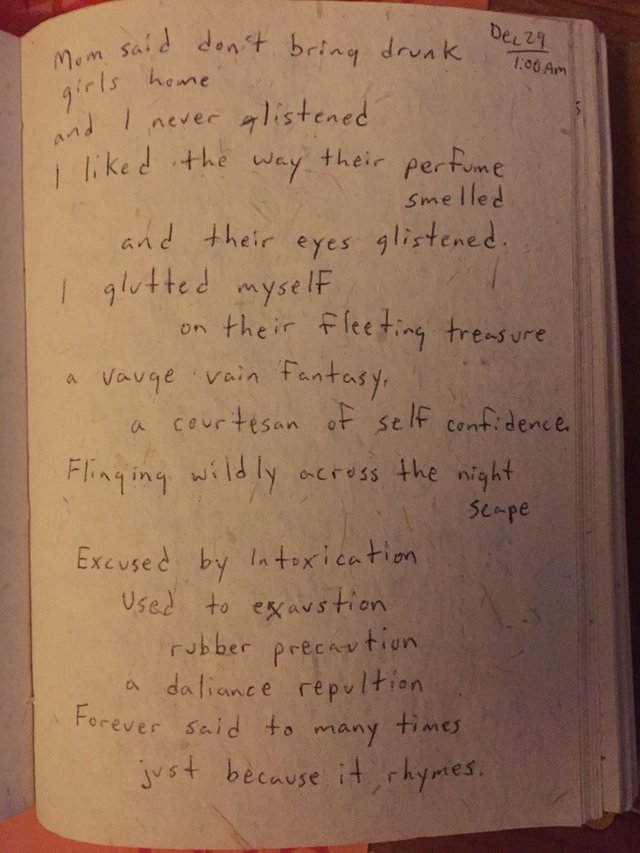 Dec 29
1:00 Am
Mom said don't bring drunk
girls home
and I never glistened
I liked the way their perfume
smelled
and their eyes glistened.
I glutted myself
on their fleeting treasure
a vauge vain fantasy,
a courtesan of self confidence.
Flinging wildly across the night
scape
Excused by Intoxication
Used to exaustion
rubber precaution
a daliance repultion
Forever said to many times
just because it rhymes.